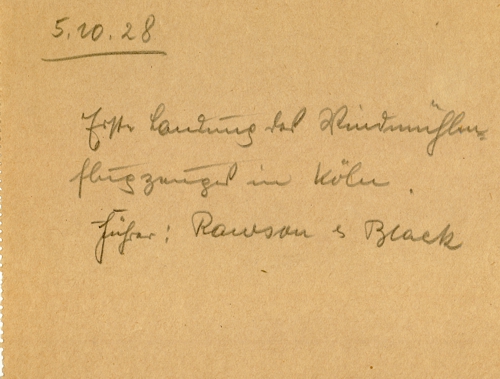 5.10.28
Erste Landung des Windmühlen-
flugzeuges in Köln.
Führer: Rawson & Black